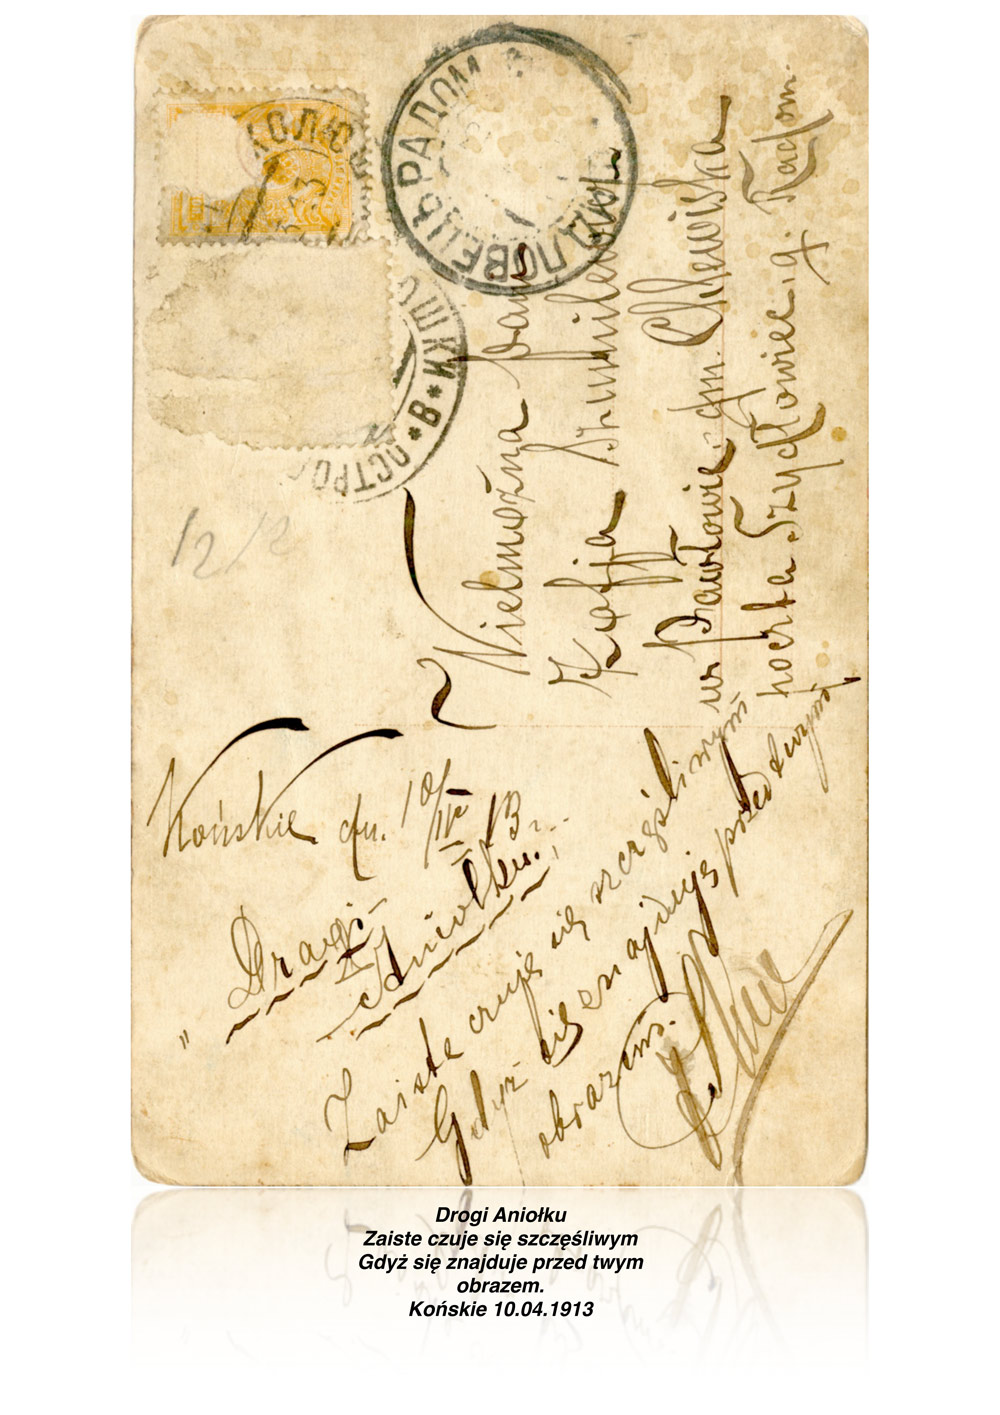 КОЛЮ
ШИДЛОВЕЦЪ РАДОМ
ОСТРО * В * КИ
12/2
Wielmożna Pani
Zofja
w Pawłowie gm. Chlewiska
poczta Szydłowiec g. Radom.
Końskie dn. 10/IV 13
"Drogi
Aniołku.
Zaiste czuję się szczęśliwym
Gdyż się znajduję przed twym
obrazem.
Drogi Aniołku
Zaiste czuje się szczęśliwym
Gdyż się znajduje przed twym
obrazem.
Końskie 10.04.1913